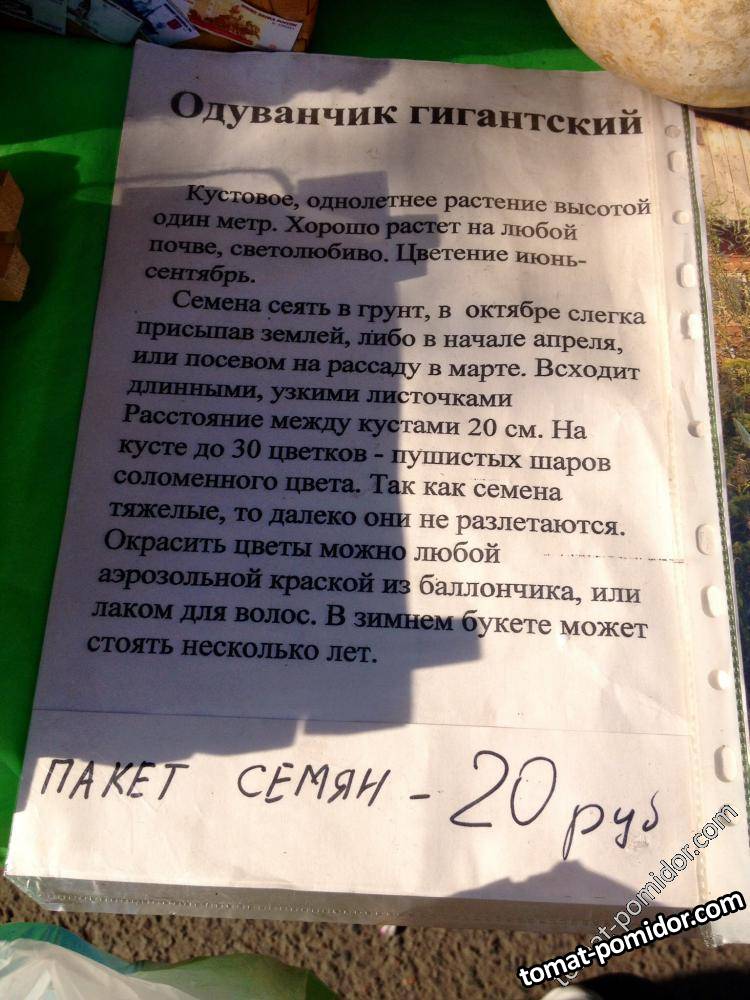 Одуванчик гигантский
Кустовое, однолетнее растение высотой
один метр. Хорошо растет на любой
почве, светолюбиво. Цветение июнь-
сентябрь.
Семена сеять в грунт, в октябре слегка
присыпав землей, либо в начале апреля,
или посевом на рассаду в марте. Всходит
длинными, узкими листочками
Расстояние между кустами 20 см. На
кусте до 30 цветков - пушистых шаров
соломенного цвета. Так как семена
тяжелые, то далеко они не разлетаются.
Окрасить цветы можно любой
аэрозольной краской из баллончика, или
лаком для волос. В зимнем букете может
стоять несколько лет.
ПАКЕТ СЕМЯН - 20 руб
tomat-pomidor.com
tomat-pomidor.com